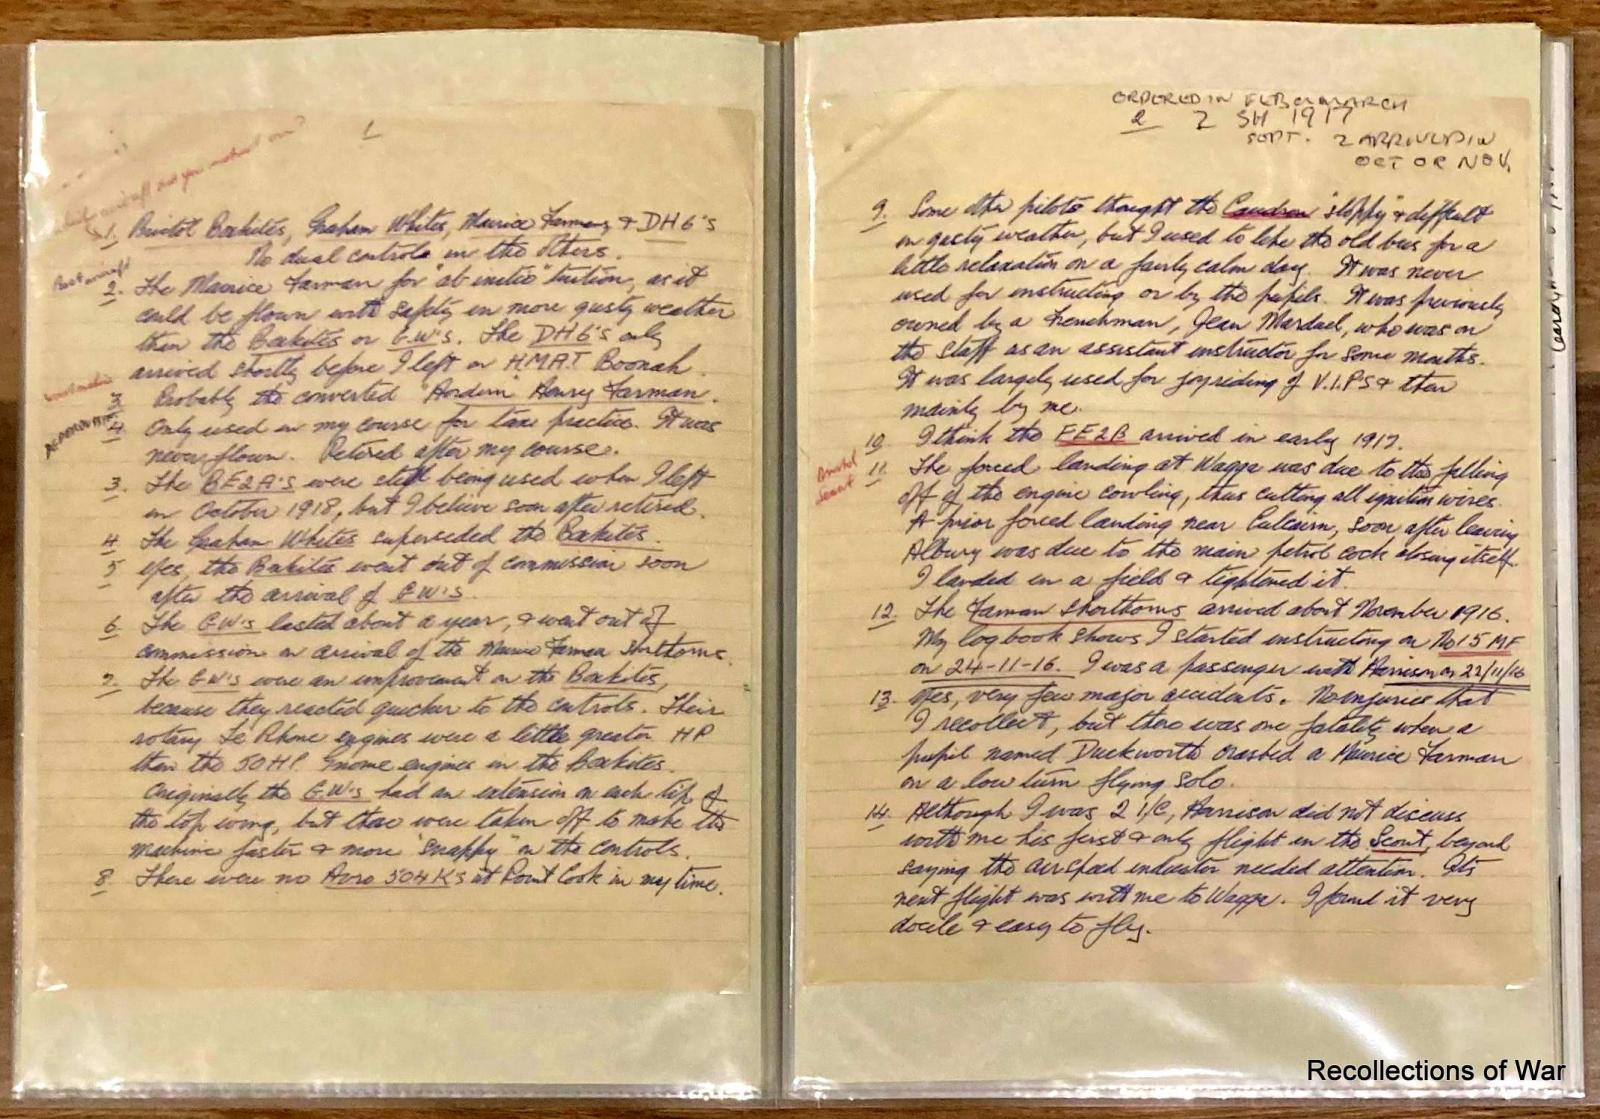 1
aircraft did you instruct on?
1. Bristol Boxkites, Graham Whites, Maurice Farmans & DH6's
No dual controls in the others.
Best aircraft
2. The Maurice Farman for "ab initio" tuition, as it
could be flown with safety in more gusty weather
then the Boxkites or G.W's. The DH6's only
arrived shortly before I left on HMAT Boonah.
3 Probably the converted Henry Farman.
4. Only used in my course for taxi practice. It was
never flown. Retired after my course.
3. The BE2A's were still being used when I left
in October 1918, but I believe soon after retired.
4. The Graham Whites superseded the Boxkites.
5 Yes, the Boxkites went out of commission soon
after the arrival of G.W's.
6. The G.W's lasted about a year, & went out of
commission on arrival of the Maurice Farman Shorthorns.
7. The G.W's were an improvement on the Boxkites,
because they reacted quicker to the controls. Their
rotary Le Rhone engines were a little greater HP
then the 50 HP. Gnome engines in the Boxkites.
Originally the G.W's had an extension on each tip of
the top wing, but these were taken off to make the
machine faster & more "snappy" on the controls.
8. There were no Avro 504K's at Point Cook in my time.
ORDERED IN FEB OR MARCH
2 2 SH 1917
SEPT. 2 ARRIVED IN
OCT OR NOV.
9. Some other pilots thought the Caudron "sloppy" & difficult
in gusty weather, but I used to like the old bus for a
little relaxation on a fairly calm day. It was never
used for instructing or by the pupils. It was previously
owned by a Frenchman, Jean Mardael, who was on
the staff as an assistant instructor for some months.
It was largely used for joyriding of V.I.PS & then
mainly by me.
10. I think the FE2B arrived in early 1917.
Bristol
Scout
11. The forced landing at Wagga was due to the falling
off of the engine cowling, thus cutting all ignition wires.
A prior forced landing near Culcairn, soon after leaving
Albury was due to the main petrol cock closing itself.
I landed in a field & tightened it.
12. The Farman Shorthorns arrived about November 1916.
My log book shows I started instructing on No 15 MF
on 24-11-16. I was a passenger with Harrison on 22/11/16
13. Yes, very few major accidents. No injuries that
I recollect, but there was one fatality when a
pupil named Duckworth crashed a Maurice Farman
on a low turn flying solo.
14. Although I was 2 I/C, Harrison did not discuss
with me his first & only flight in the Scout, beyond
saying the airspeed indicator needed attention. Its
next flight was with me to Wagga. I found it very
docile & easy to fly.
Recollections of War